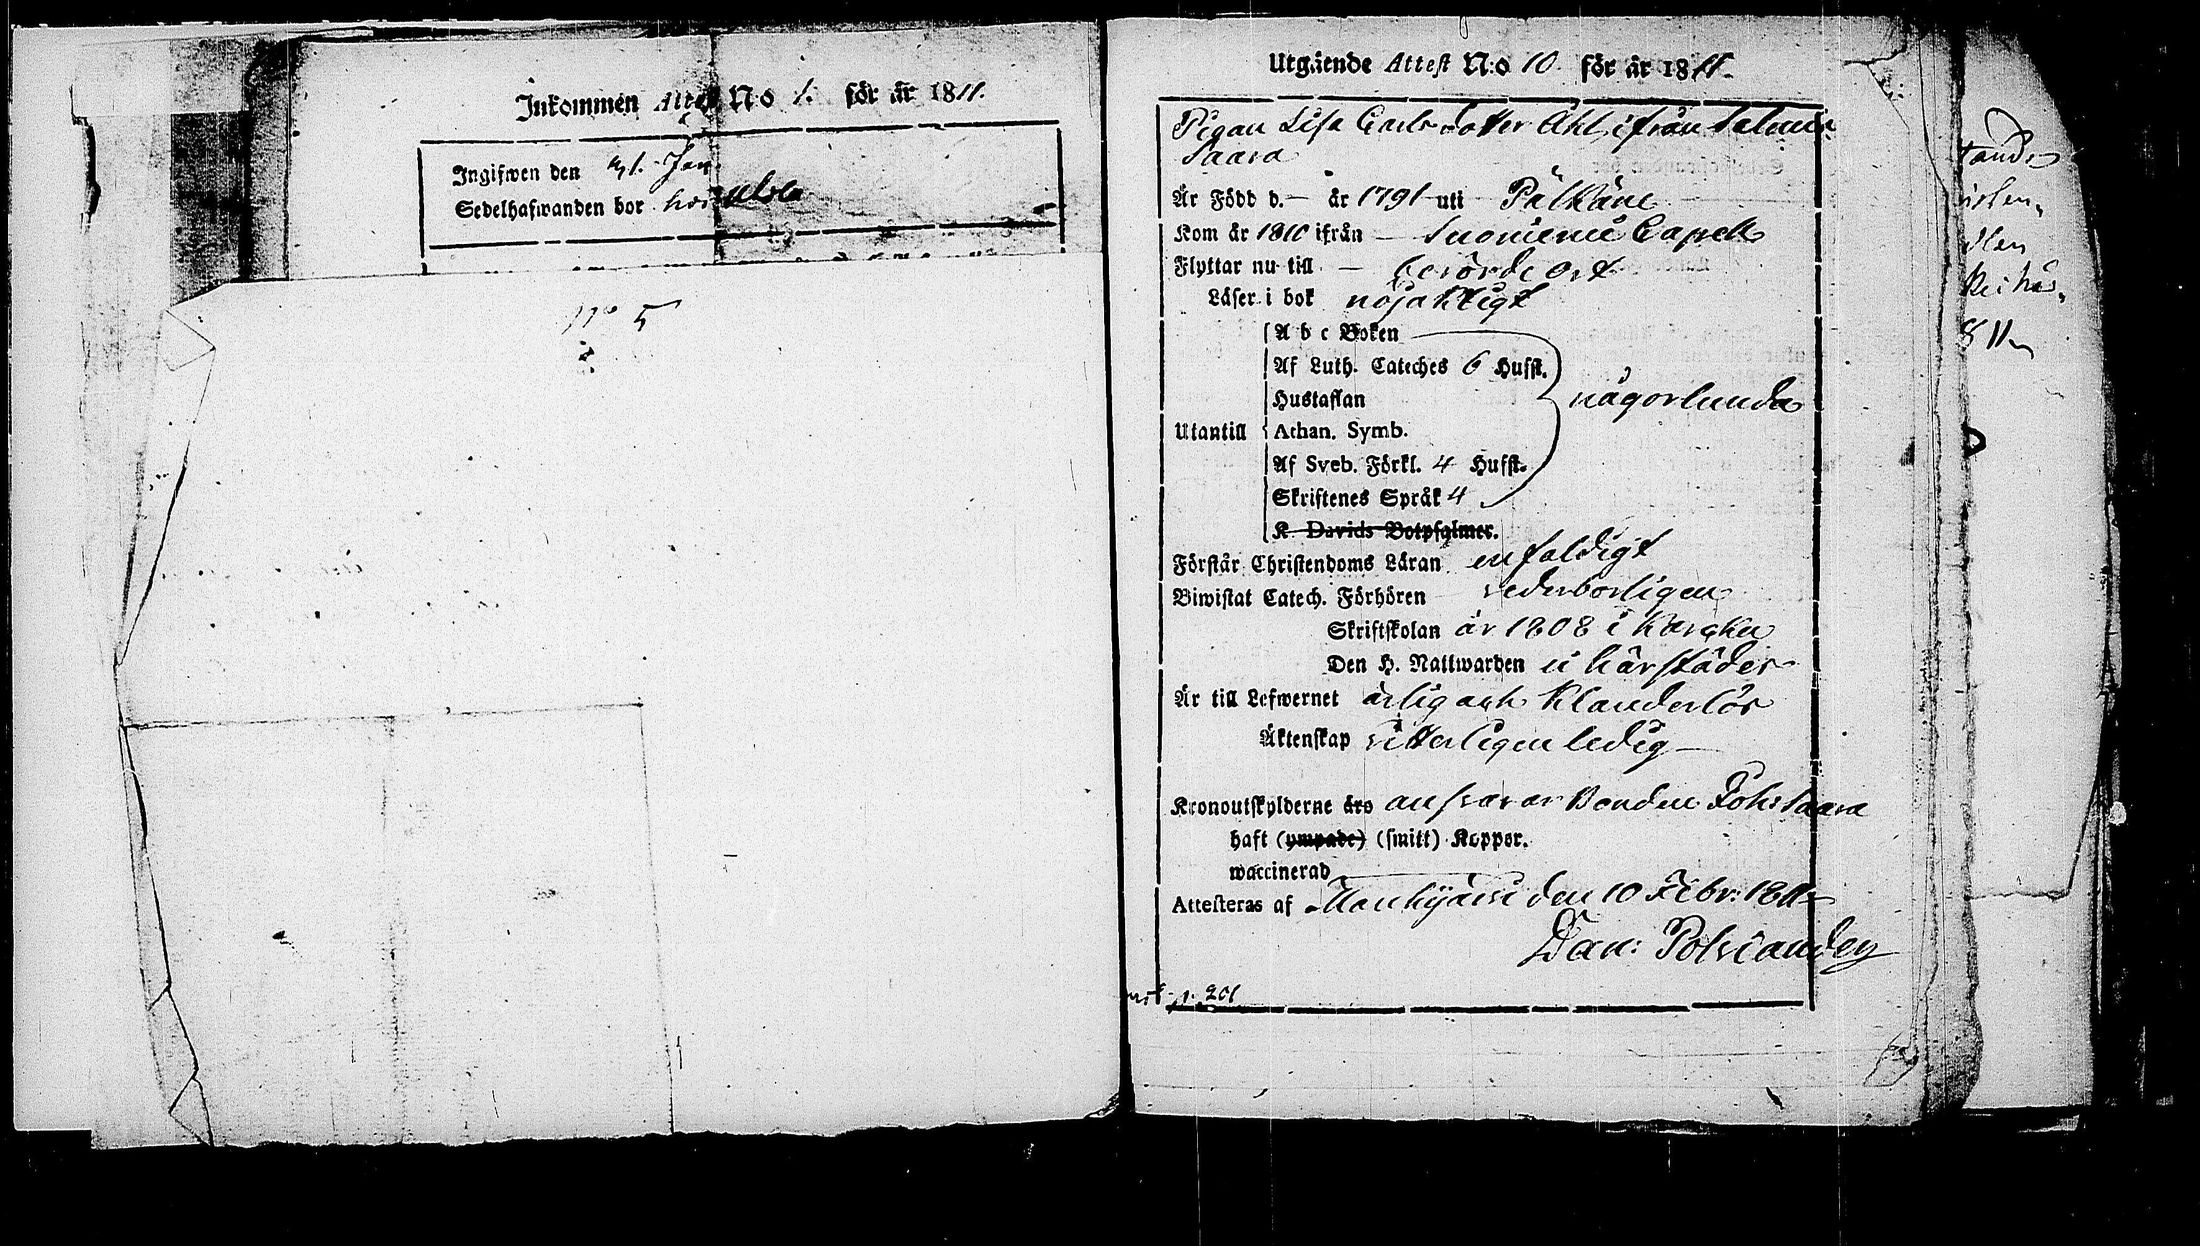 Inkommen Attest N:o 1. för år 1811.
Ingifwen den 21. Jan
Sedelhafwanden bor hos
N:o 5
Utgående Attest N:o 10. för år 1811.
Pigan Lisa Carls dotter Ahl, ifrån
Saara
Är Född d. — år 1791 uti Pälkäne
Kom år 1810 ifrån — Suoniemi Capell
Flyttar nu till — berörde ort
Läser i bok nöjaktigt
A b c Boken
Af Luth. Cateches 6 Husst.
Hustaflan någorlunda
Utantill Athan. Symb.
Af Sveb. Förkl. 4 Husst.
Skriftenes Språk 4
K. Davids Botpsalmer.
Förstår Christendoms Läran enfaldigt
Biwistat Catech. Förhören vederborligen
Skriftskolan år 1808 i Karcku
Den H. Nattwarden ei härstädes
Är till Lefwernet ärlig och Klanderlös
Äktenskap vitterligen ledig —
Kronoutskylderne äro ansvarar Bonden Joh: Saara
haft (ympade) (smitt) Koppor.
waccinerad
Attesteras af Mouhijärvi den 10 Febr: 1811
Dan: Polviander
p. 201
8 11